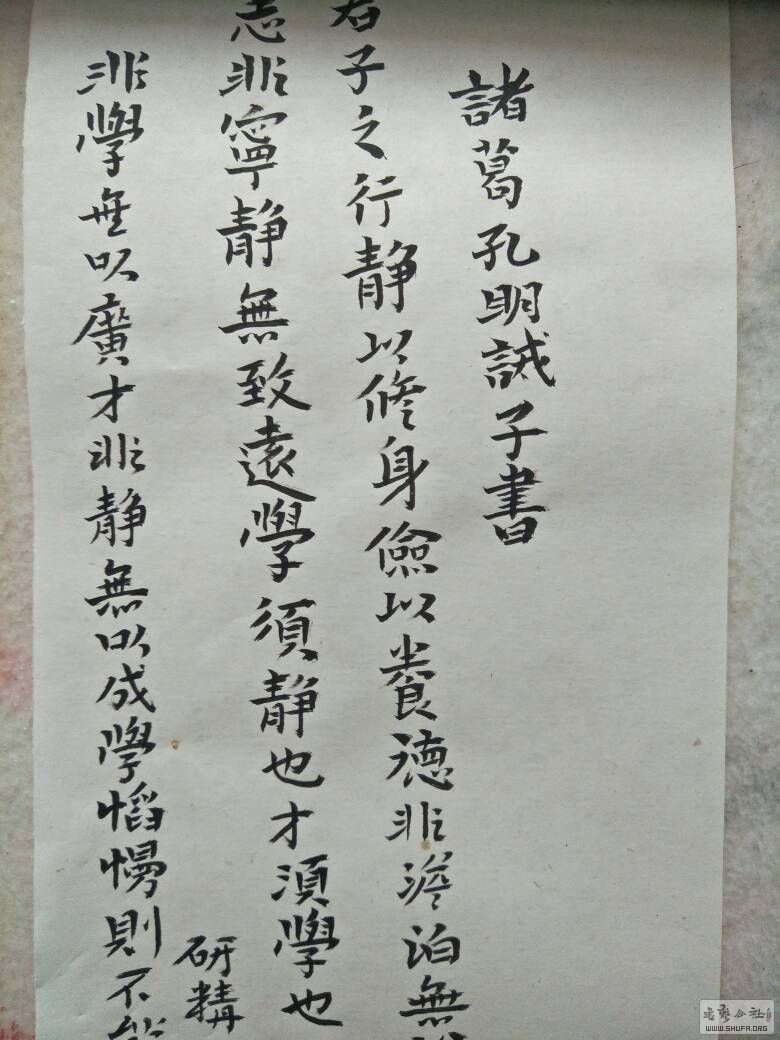 諸葛孔明誡子書
君子之行靜以修身儉以養德非澹泊無
志非寧靜無致遠學須靜也才須學也
非學無以廣才非靜無以成學慆慢則不能
研精
WWW.SHUFA.ORG